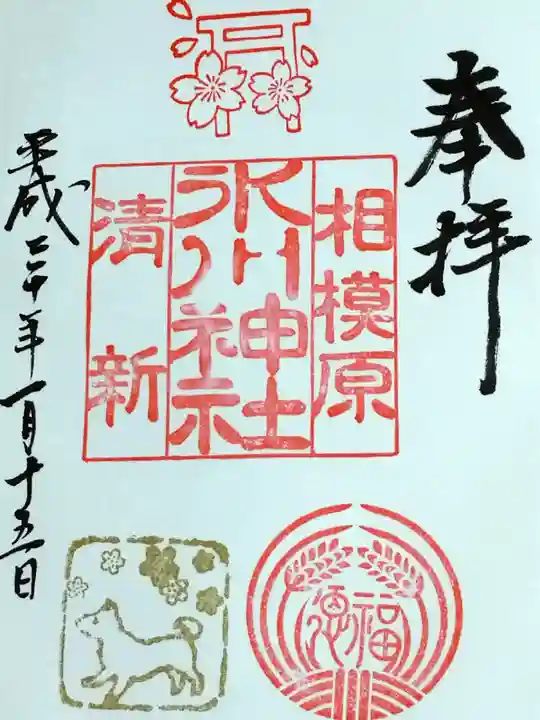 奉拝
相模原
氷川神社
清新
平成三十年一月十五日
福